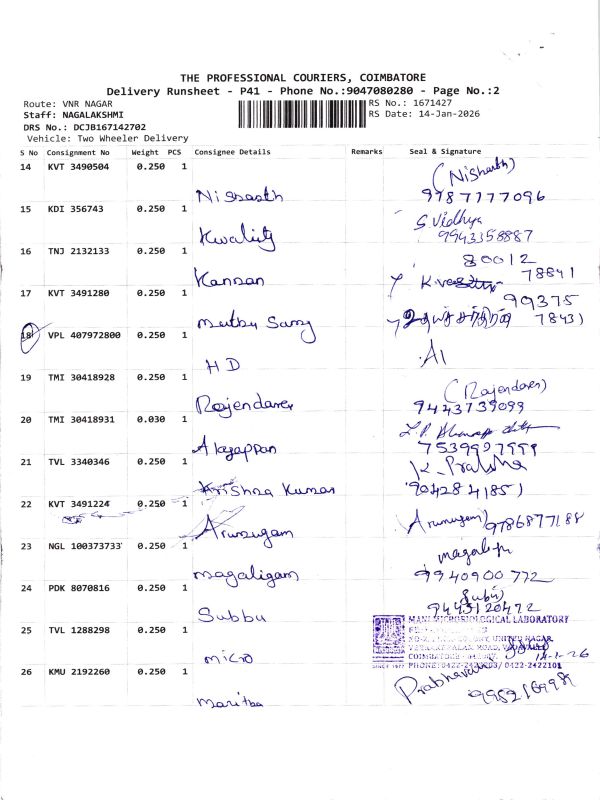 THE PROFESSIONAL COURIERS, COIMBATORE
Delivery Runsheet - P41 - Phone No.:9047080280 - Page No.:2
Route: VNR NAGAR
Staff: NAGALAKSHMI
DRS No.: DCJB167142702
Vehicle: Two Wheeler Delivery
RS No.: 1671427
RS Date: 14-Jan-2026
S No Consignment No Weight PCS Consignee Details Remarks Seal & Signature
14 KVT 3490504 0.250 1
(Nishanth)
Nishanth 9787777096
15 KDI 356743 0.250 1
S. Vidhya
Kwality 9943358887
16 TNJ 2132133 0.250 1
80012
78841
Kannan
17 KVT 3491280 0.250 1
99375
Muthu Samy
78431
18 VPL 407972800 0.250 1
HD A1
19 TMI 30418928 0.250 1
(Rajendaren)
Rajendaren 9443739099
20 TMI 30418931 0.030 1
Alagappan 7539997999
21 TVL 3340346 0.250 1
Krishna Kumar 9042841851
22 KVT 3491224 0.250 1
Arumugam (Arumugam) 9786877188
23 NGL 100373733 0.250 1
magaligam 9940900772
24 PDK 8070816 0.250 1
Subbu 9443120472
25 TVL 1288298 0.250 1
MICROBIOLOGICAL LABORATORY
COLONY, UNITED NAGAR
PHONE: 0422-2422101
micro 14-1-26
26 KMU 2192260 0.250 1
Maritha